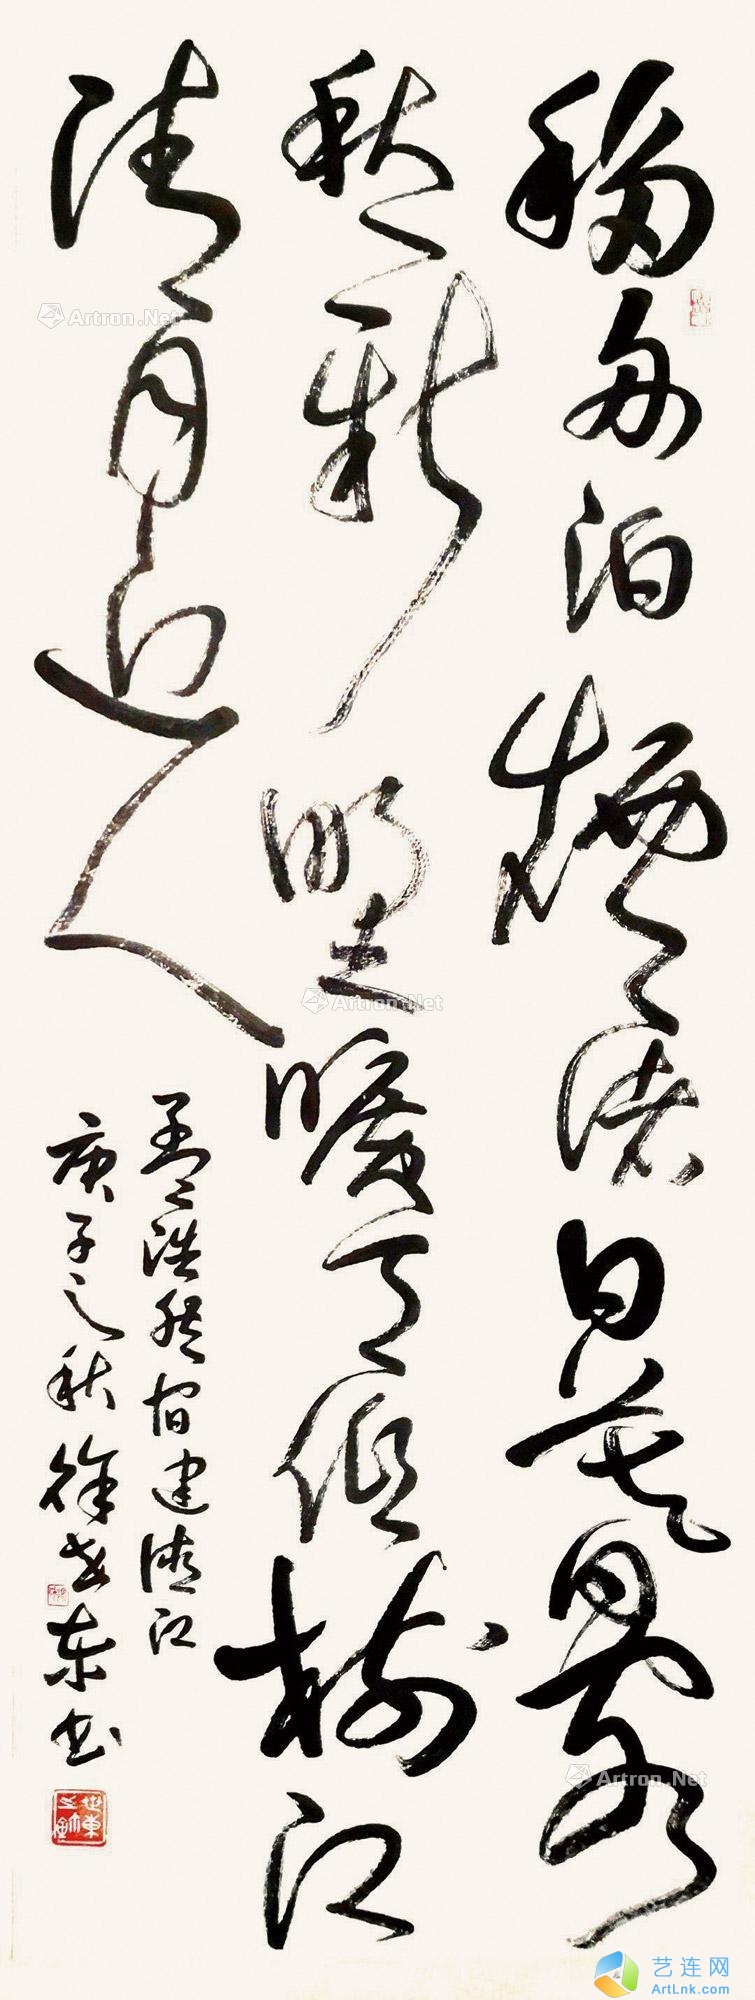 移舟泊煙渚日暮客
愁新野曠天低樹江
清月近人
孟浩然宿建德江
庚子之秋徐世東書
Artron.Net
Artron.Net
Artron.Net
艺连网
ArtLnk.Com